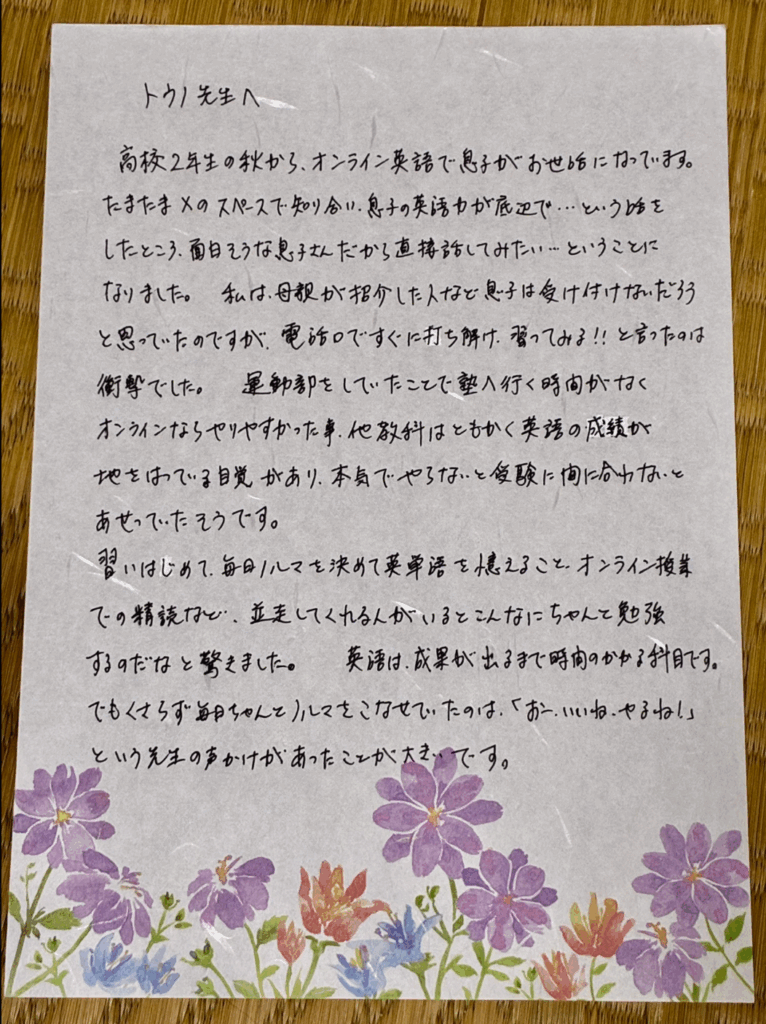 トウノ先生へ
高校2年生の秋から、オンライン英語で息子がお世話になっています。
たまたまXのスペースで知り合い、息子の英語力が底辺で…という話を
したところ、面白そうな息子さんだから直接話してみたい…ということに
なりました。 私は、母親が紹介した人など息子は受け付けないだろう
と思っていたのですが、電話口ですぐに打ち解け、習ってみる!!と言ったのは
衝撃でした。 運動部をしていたことで塾へ行く時間がなく
オンラインならやりやすかった事、他教科はともかく英語の成績が
地をはっている自覚があり、本気でやらないと受験に間に合わないと
あせっていたそうです。
習いはじめて、毎日ノルマを決めて英単語を憶えること、オンライン授業
での精読など、並走してくれる人がいるとこんなにちゃんと勉強
するのだなと驚きました。 英語は、成果が出るまで時間のかかる科目です。
でもくさらず毎日ちゃんとノルマをこなせていたのは、「おー、いいね、やるね!」
という先生の声かけがあったことが大きいです。